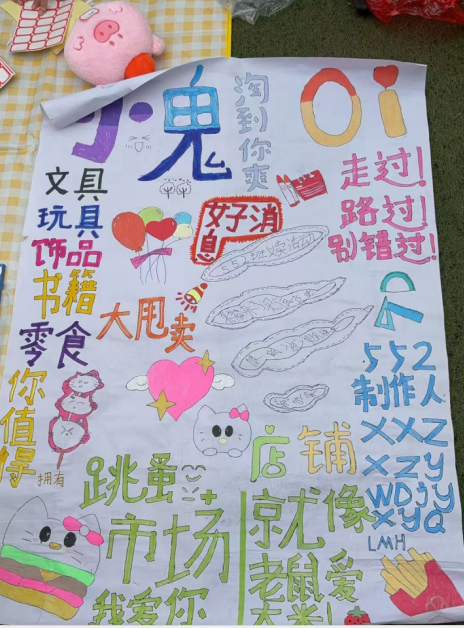 小鬼
Oi
淘到你爽
走过！
路过！
别错过！
好消息
文具
玩具
饰品
书籍
零食
你值得
拥有
大甩卖
552
制作人
XXZ
XZY
WDjy
XYQ
LMH
店铺
跳蚤
市场
我爱你
就像
老鼠爱
大米！